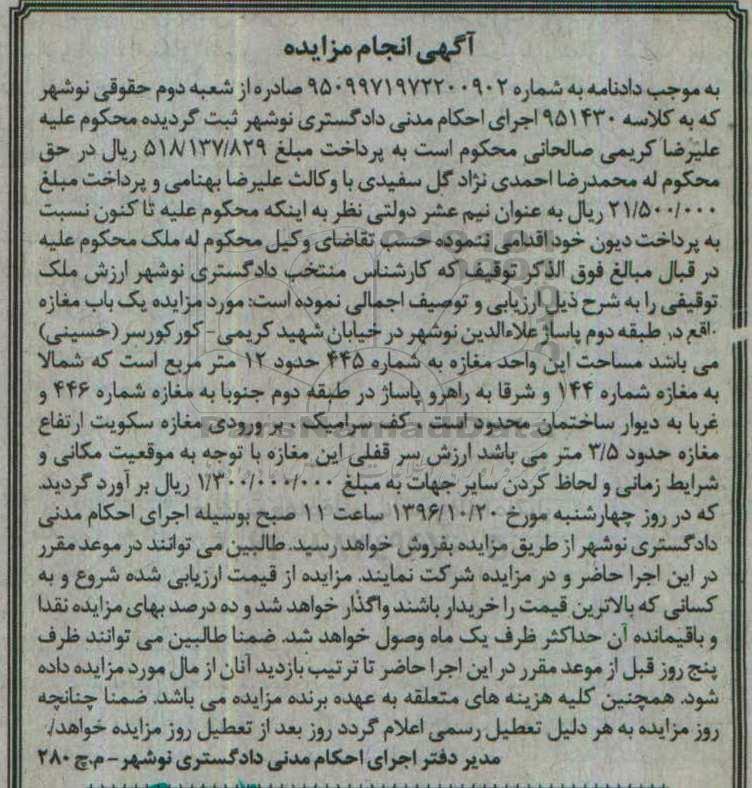 آگهی انجام مزایده
به موجب دادنامه به شماره ۹۵۰۹۹۷۱۹۷۲۲۰۰۹۰۲ صادره از شعبه دوم حقوقی نوشهر
که به کلاسه ۹۵۱۴۳۰ اجرای احکام مدنی دادگستری نوشهر ثبت گردیده محکوم علیه
علیرضا کریمی صالحانی محکوم است به پرداخت مبلغ ۵۱۸/۱۳۷/۸۲۹ ریال در حق
محکوم له محمدرضا احمدی نژاد گل سفیدی با وکالت علیرضا بهنامی و پرداخت مبلغ
۲۱/۵۰۰/۰۰۰ ریال به عنوان نیم عشر دولتی نظر به اینکه محکوم علیه تا کنون نسبت
به پرداخت دیون خود اقدامی ننموده حسب تقاضای وکیل محکوم له ملک محکوم علیه
در قبال مبالغ فوق الذکر توقیف که کارشناس منتخب دادگستری نوشهر ارزش ملک
توقیفی را به شرح ذیل ارزیابی و توصیف اجمالی نموده است: مورد مزایده یک باب مغازه
واقع در طبقه دوم پاساژ علاءالدین نوشهر در خیابان شهید کریمی- کورکورسر (حسینی)
می باشد مساحت این واحد مغازه به شماره ۴۴۵ حدود ۱۲ متر مربع است که شمالا
به مغازه شماره ۱۴۴ و شرقا به راهرو پاساژ در طبقه دوم جنوبا به مغازه شماره ۴۴۶ و
غربا به دیوار ساختمان محدود است ، کف سرامیک ، بر ورودی مغازه سکوریت ارتفاع
مغازه حدود ۳/۵ متر می باشد ارزش سر قفلی این مغازه با توجه به موقعیت مکانی و
شرایط زمانی و لحاظ کردن سایر جهات به مبلغ ۱/۳۰۰/۰۰۰/۰۰۰ ریال بر آورد گردید.
که در روز چهارشنبه مورخ ۱۳۹۶/۱۰/۲۰ ساعت ۱۱ صبح بوسیله اجرای احکام مدنی
دادگستری نوشهر از طریق مزایده بفروش خواهد رسید. طالبین می توانند در موعد مقرر
در این اجرا حاضر و در مزایده شرکت نمایند. مزایده از قیمت ارزیابی شده شروع و به
کسانی که بالاترین قیمت را خریدار باشند واگذار خواهد شد و ده درصد بهای مزایده نقدا
و باقیمانده آن حداکثر ظرف یک ماه وصول خواهد شد. ضمنا طالبین می توانند ظرف
پنج روز قبل از موعد مقرر در این اجرا حاضر تا ترتیب بازدید آنان از مال مورد مزایده داده
شود. همچنین کلیه هزینه های متعلقه به عهده برنده مزایده می باشد. ضمنا چنانچه
روز مزایده به هر دلیل تعطیل رسمی اعلام گردد روز بعد از تعطیل روز مزایده خواهد/.
مدیر دفتر اجرای احکام مدنی دادگستری نوشهر - م.چ ۲۸۰
ParsNamadData